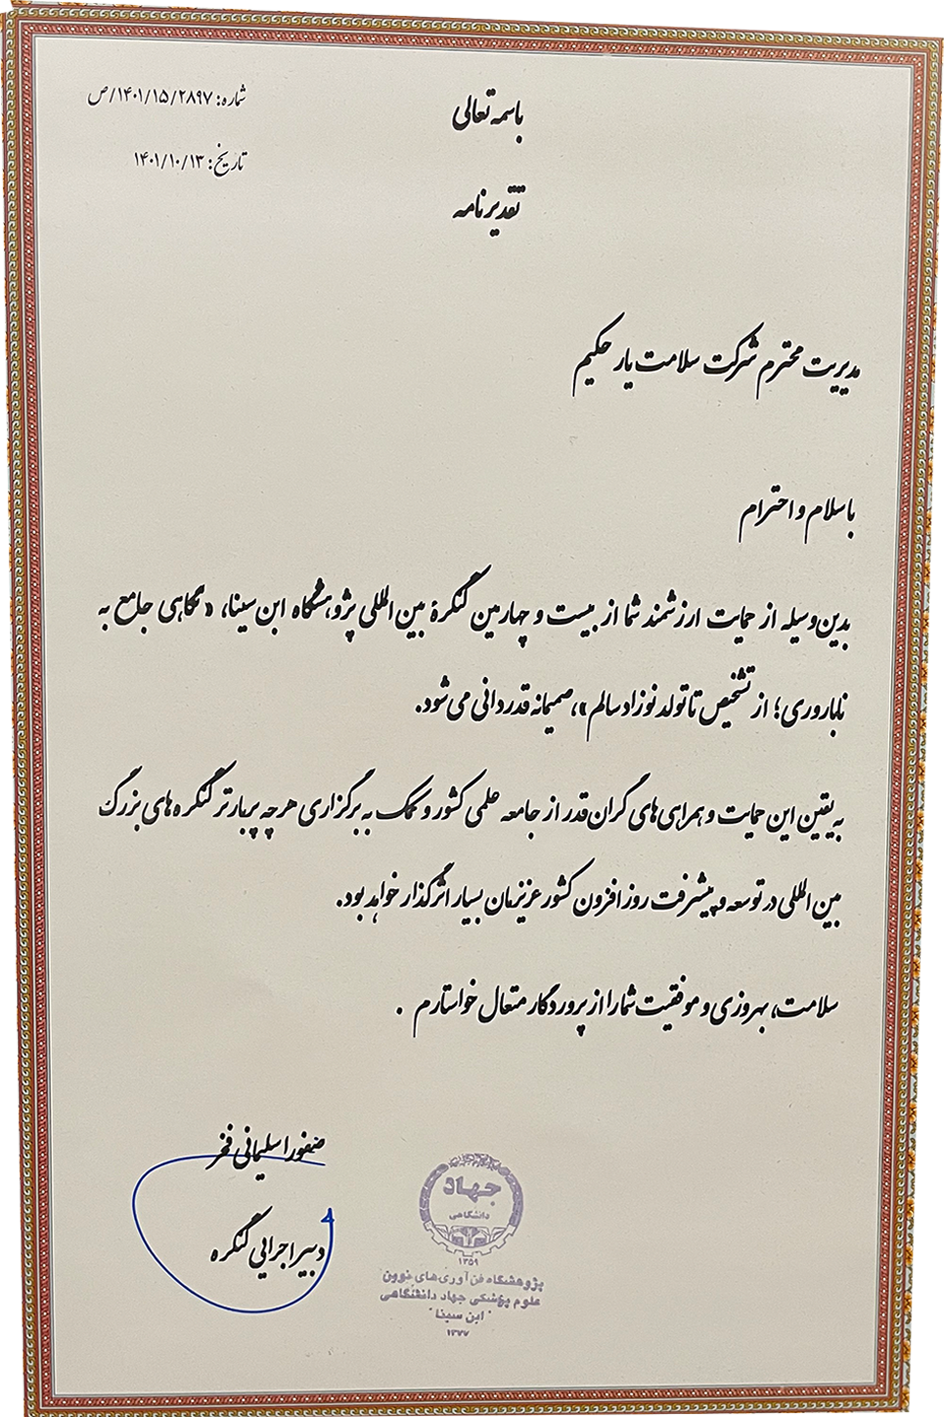 شماره: ۱۴۰۱/۱۵/۲۸۹۷/ص
تاریخ: ۱۴۰۱/۱۰/۱۳
باسمه تعالی
تقدیرنامه
مدیریت محترم شرکت سلامت یار حکیم
با سلام و احترام
بدین‌وسیله از حمایت ارزشمند شما از بیست و چهارمین کنگرهٔ بین المللی پژوهشگاه ابن سینا، «نگاهی جامع به
ناباروری؛ از تشخیص تا تولد نوزاد سالم»، صمیمانه قدردانی می‌شود.
به یقین این حمایت و همراهی‌های گران‌قدر از جامعه علمی کشور و کمک به برگزاری هرچه پربارتر کنگره‌های بزرگ
بین المللی در توسعه و پیشرفت روزافزون کشور عزیزمان بسیار اثرگذار خواهد بود.
سلامت، بهروزی و موفقیت شما را از پروردگار متعال خواستارم .
سلیمانی فخر
دبیر اجرایی کنگره
جهاد
دانشگاهی
۱۳۵۹
پژوهشگاه فن‌آوری‌های نوین
علوم پزشکی جهاد دانشگاهی
"ابن سینا"
۱۳۷۷